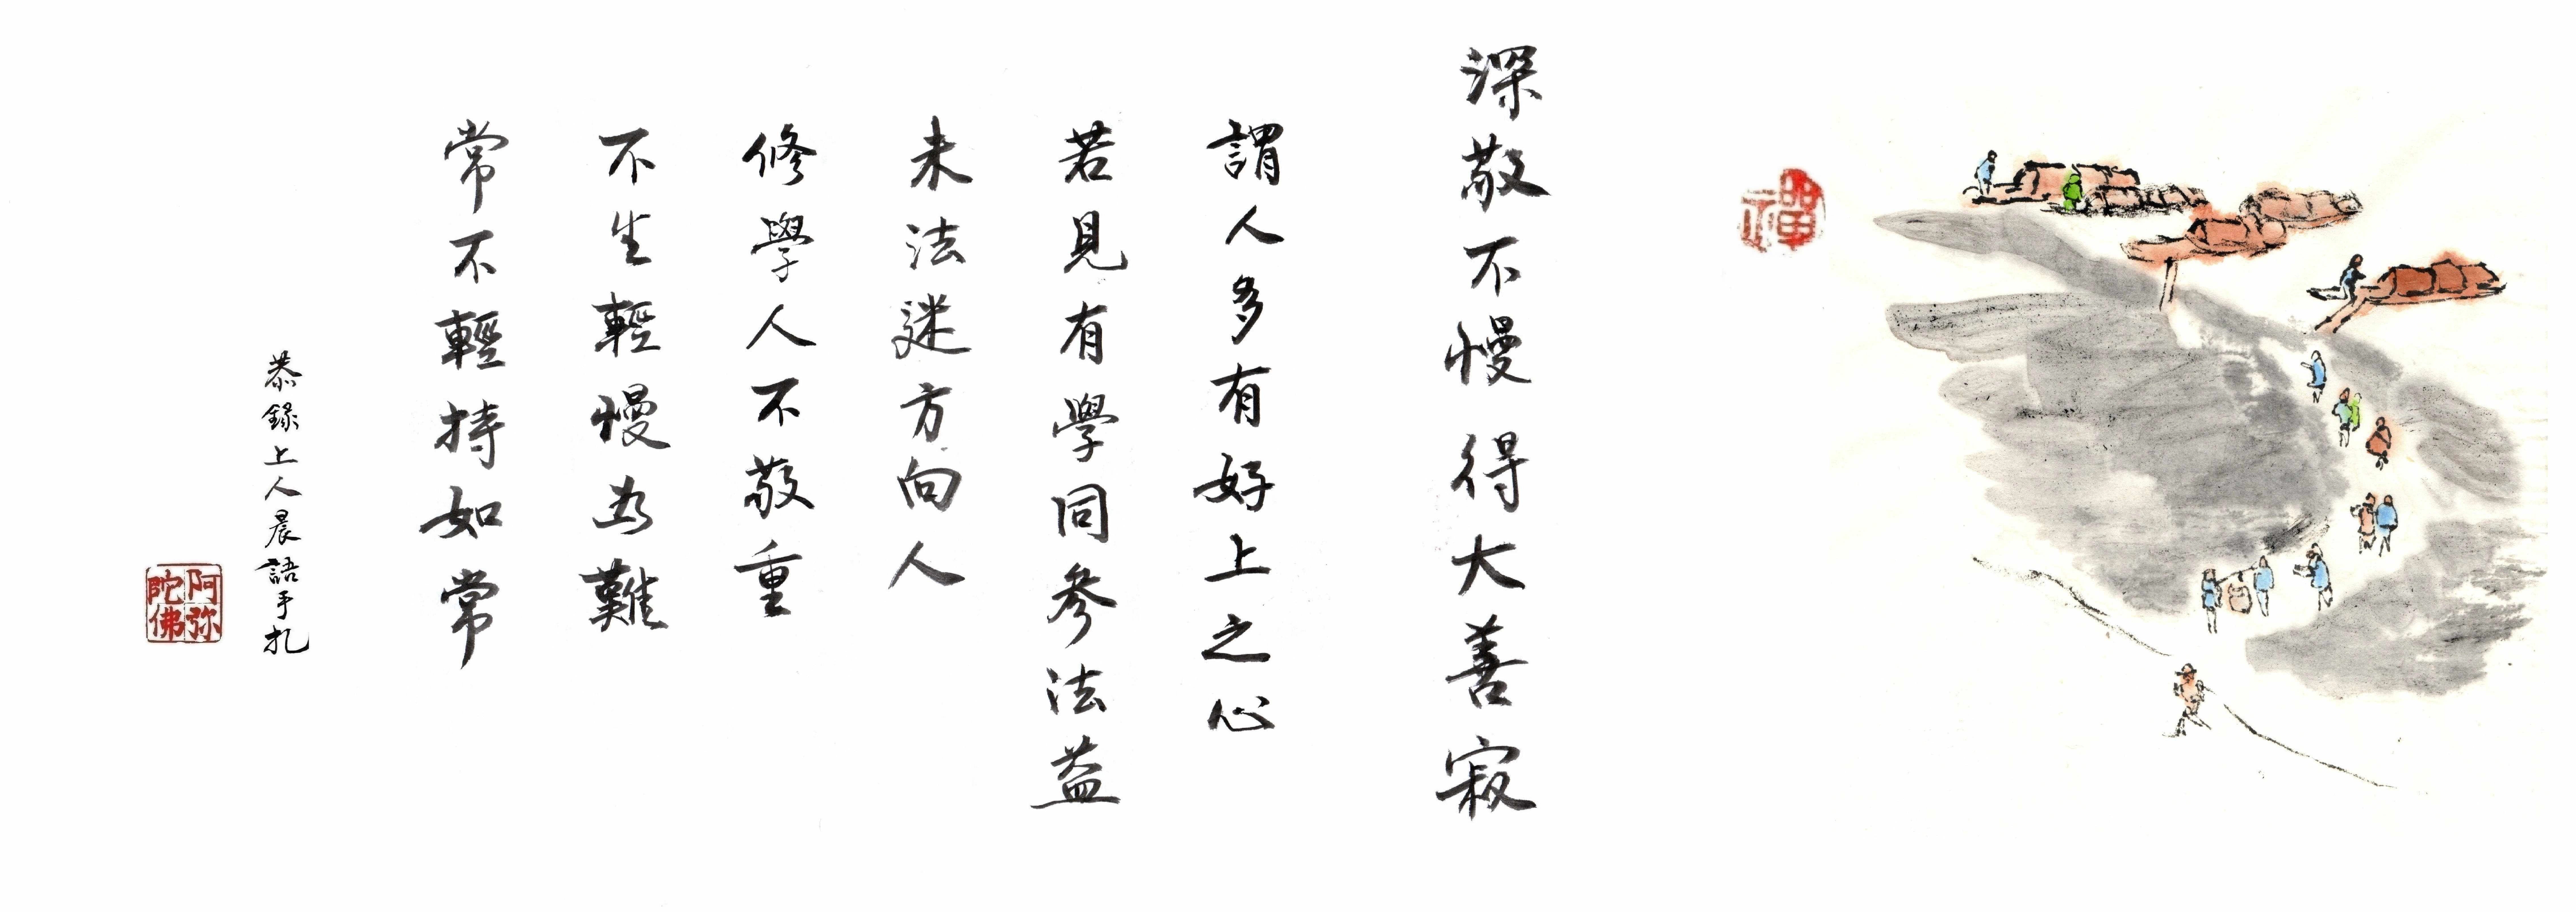 禪
深敬不慢得大善寂
謂人多有好上之心
若見有學同參法益
未法迷方向人
修學人不敬重
不生輕慢為難
常不輕持如常
恭錄上人晨語手扎
阿弥陀佛